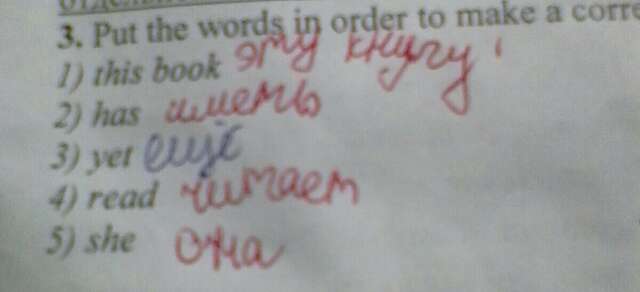 3. Put the words in order to make a corre
1) this book эту книгу
2) has иметь
3) yet ещё
4) read читает
5) she она